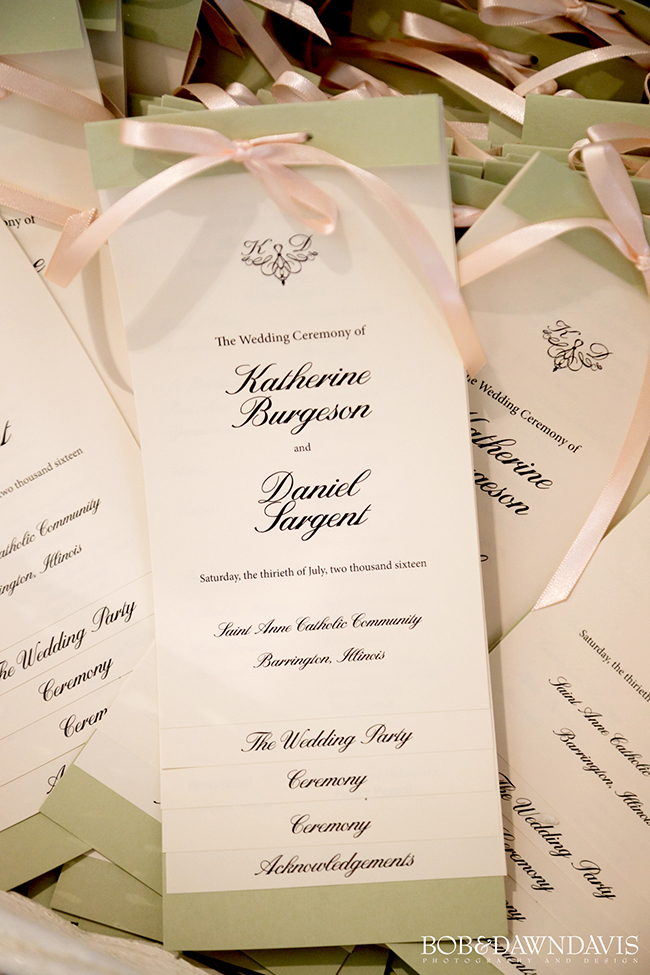 K D
The Wedding Ceremony of
Katherine
Burgeson
and
Daniel
Sargent
Saturday, the thirieth of July, two thousand sixteen
Saint Anne Catholic Community
Barrington, Illinois
The Wedding Party
Ceremony
Ceremony
Acknowledgements
ony of
t
two thousand sixteen
atholic Community
Barrington, Illinois
The Wedding Party
Ceremony
Ceremon
Ac
K D
The Wedding Ceremony of
Katherine
Burgeson
Saturday, the thirieth
Saint Anne Catholic
Barrington, Illinois
The Wedding Party
Ceremony
BOB&DAWNDAVIS
PHOTOGRAPHY AND DESIGN